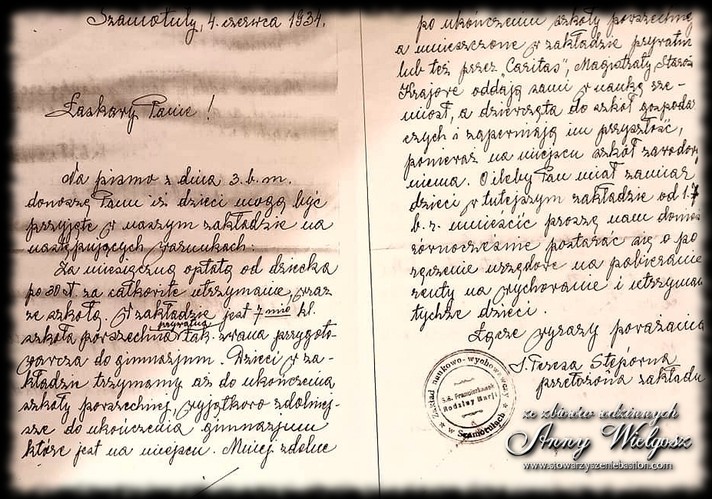 Szamotuły, 4. czerwca 1934.
Łaskawy Panie!
Na pismo z dnia 3. b.m.
donoszę Panu iż dzieci mogą być
przyjęte w naszym zakładzie na
następujących warunkach:
Za miesięczną opłatą od dziecka
po 30 zł. za całkowite utrzymanie, wraz
ze szkołą. W zakładzie jest 7 mio kl.
szkoła powszechna prywatna tak zwana przygoto-
wawcza do gimnazjum. Dzieci w za-
kładzie trzymamy aż do ukończenia
szkoły powszechnej, wyjątkowo zdolniej-
sze do ukończenia gimnazjum
które jest na miejscu. Mniej zdolne
po ukończeniu szkoły powszechnej
a umieszczone w zakładzie prywatn
lub też przez "Caritas", Magistraty, Staros
Krajowe oddają sami w naukę rze-
miosł, a dziewczęta do szkół gospoda
czych i zapewniają im przyszłość,
ponieważ na miejscu szkół zawodow
niema. O ileby Pan miał zamiar
dzieci w tutejszym zakładzie od 1.7
b.r. umieścić proszę nam donieś
równocześnie postarać się o po
zęczenie urzędowe na pobieranie
renty na wychowanie i utrzyman
tychże dzieci.
Łączę wyrazy poważania
S. Teresa Stępówna
przełożona zakładu
Zakład naukowo-wychowawczy
S.S. Franciszkanek
Rodziny Marji
w Szamotułach
ze zbiorów rodzinnych
Anny Wielgosz
www.stowarzyszeniebastion.com